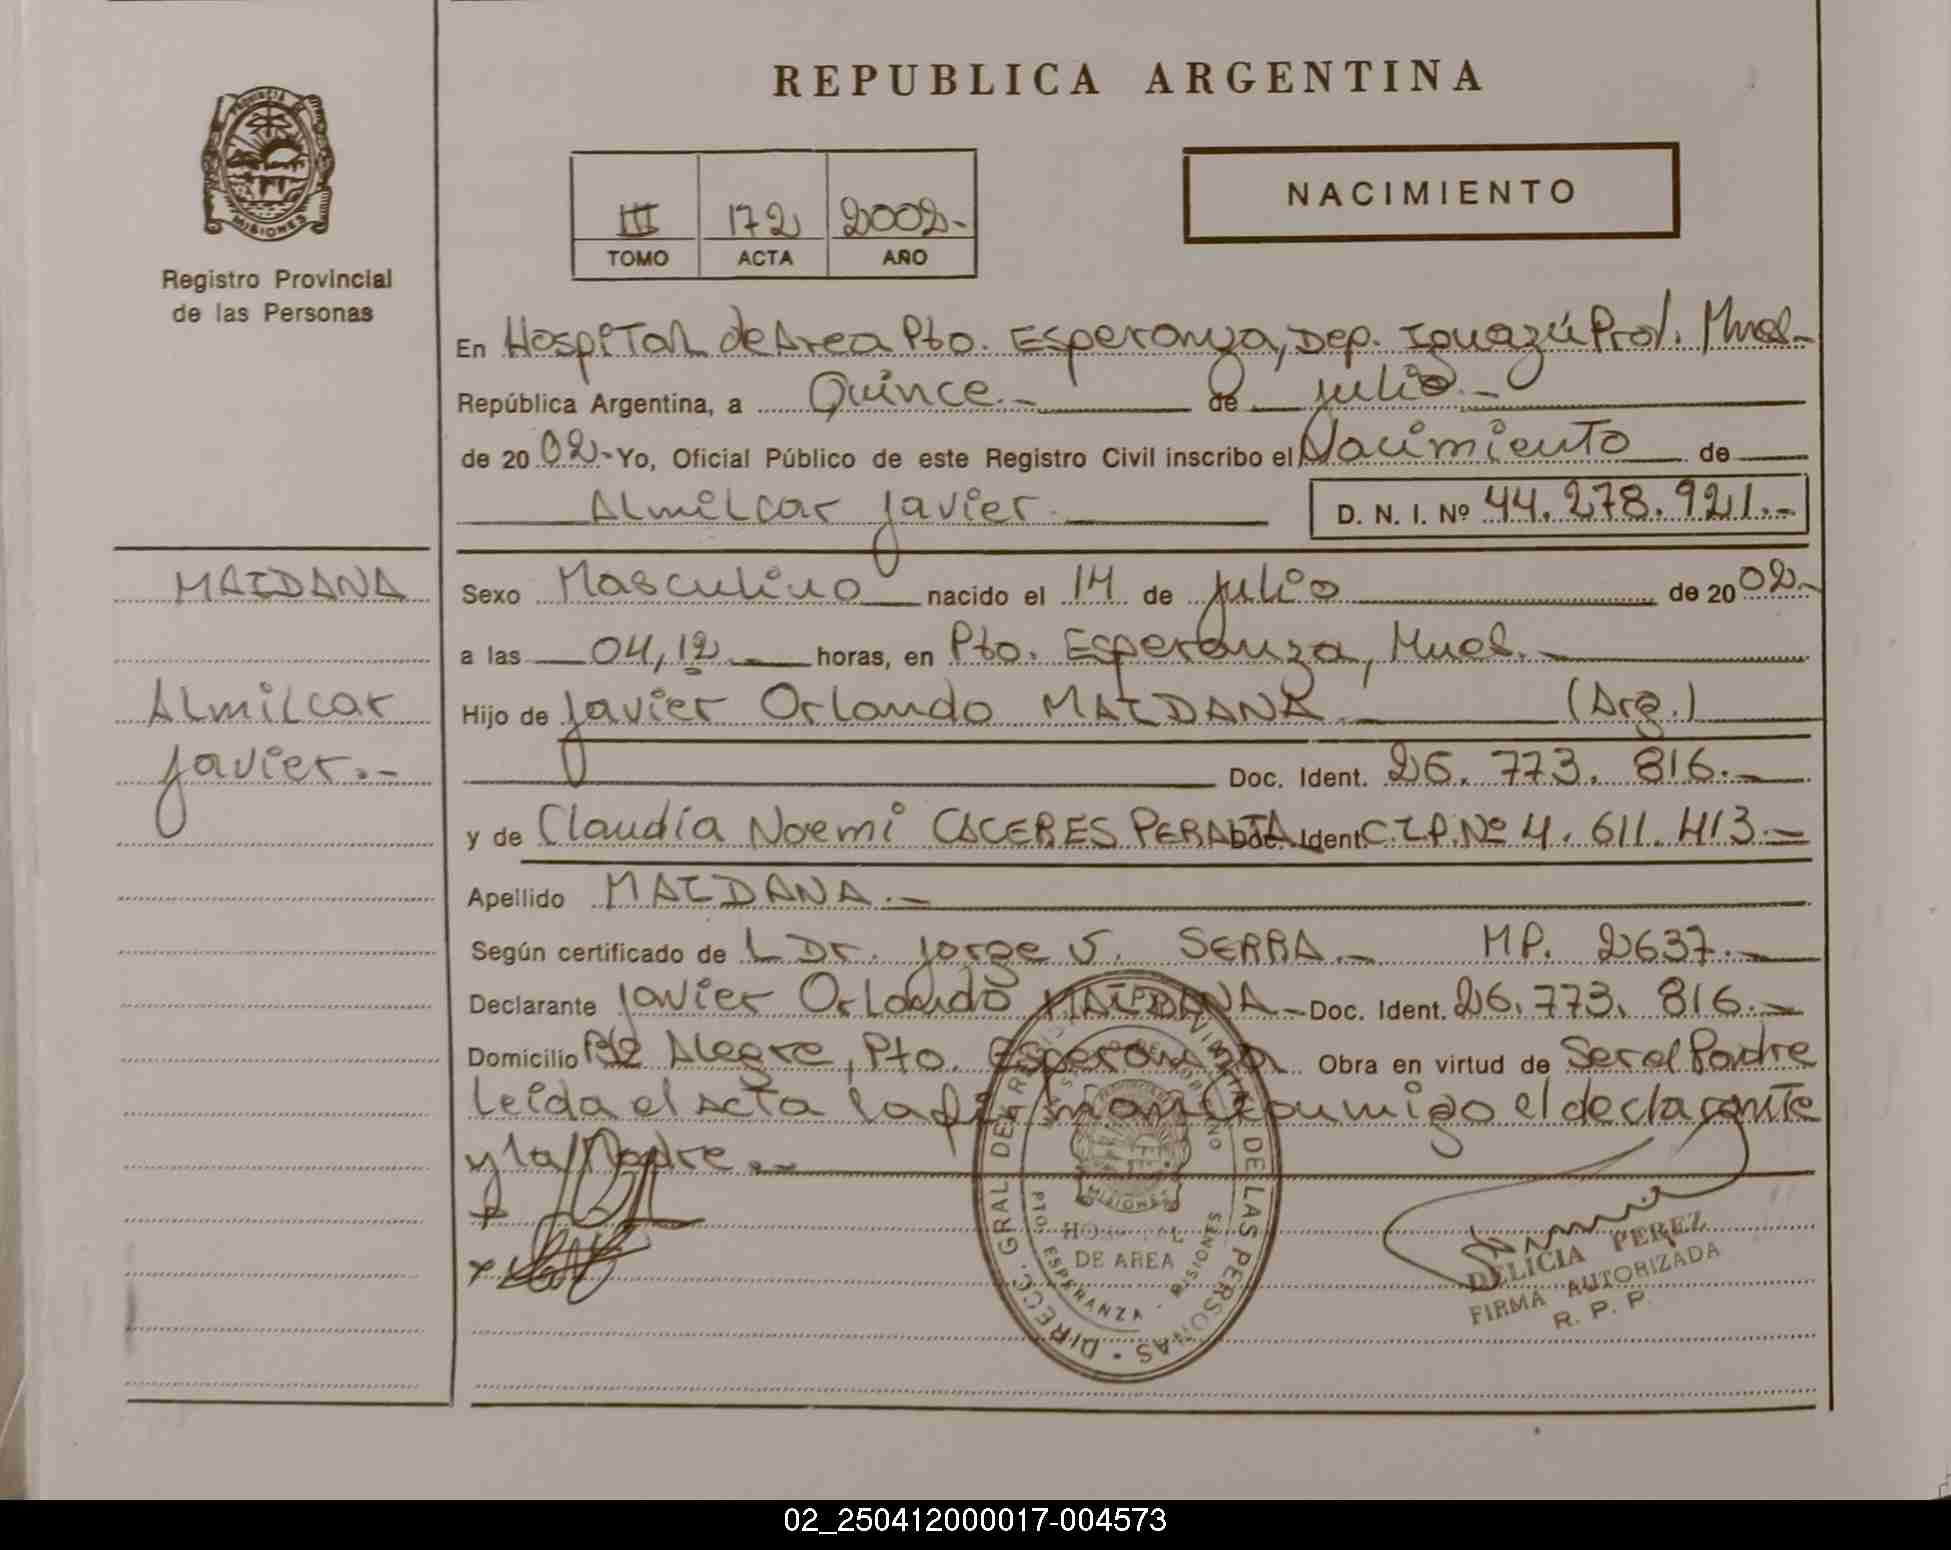 REPUBLICA ARGENTINA
NACIMIENTO
III 172 2002.-
TOMO ACTA AÑO
PROVINCIA DE MISIONES
Registro Provincial
de las Personas
En Hospital de Area Pto. Esperanza, Dep. Iguazú Prov. Mnes.-
República Argentina, a Quince.- de julio.-
de 2002.- Yo, Oficial Público de este Registro Civil inscribo el Nacimiento de
Almilcar Javier. D. N. I. Nº 44.278.921.-
MAIDANA
Almilcar
Javier.-
Sexo Masculino nacido el 14 de julio de 2002.-
a las 04,12 horas, en Pto. Esperanza, Mnes.-
Hijo de Javier Orlando MAIDANA (Arg.)
Doc. Ident. 26.773.816.-
y de Claudia Noemi CACERES PERALTA Doc. Ident. C.I.P. Nº 4.611.413.-
Apellido MAIDANA.-
Según certificado de L Dr. Jorge J. SERRA.- MP. 2637.-
Declarante Javier Orlando MAIDANA.- Doc. Ident. 26.773.816.-
Domicilio Alegre, Pto. Esperanza Obra en virtud de Ser el Padre
Leida el Acta la firman conmigo el declarante
y la Madre.-
DIRECC. GRAL DE REGISTRO PROVINCIAL DE LAS PERSONAS
MISIONES
HOSPITAL
DE AREA
PTO. ESPERANZA - MISIONES
DELICIA PEREZ
FIRMA AUTORIZADA
R. P. P.
02_250412000017-004573